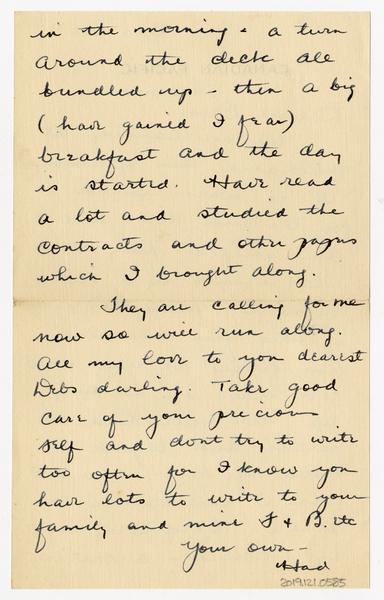 in the morning & a turn
around the deck all
bundled up - then a big
(have gained I fear)
breakfast and the day
is started. Have read
a lot and studied the
contracts and other papers
which I brought along.
They are calling for me
now so will run along.
All my love to you dearest
Debs darling. Take good
care of your precious
self and dont try to write
too often for I know you
have lots to write to your
family and mine F & B. etc
Your own -
Had
2019.121.0585